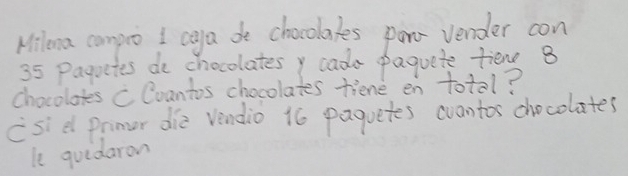 Milena compro 1 caja de chocolates para vender con
35 Paquetes de chocolates y cado paquete tiene 8
Chocolates ¿ Cuantos chocolates tiene en total?
¿Si el primer dia Vendio 16 paquetes cuantos chocolates
le quedaron